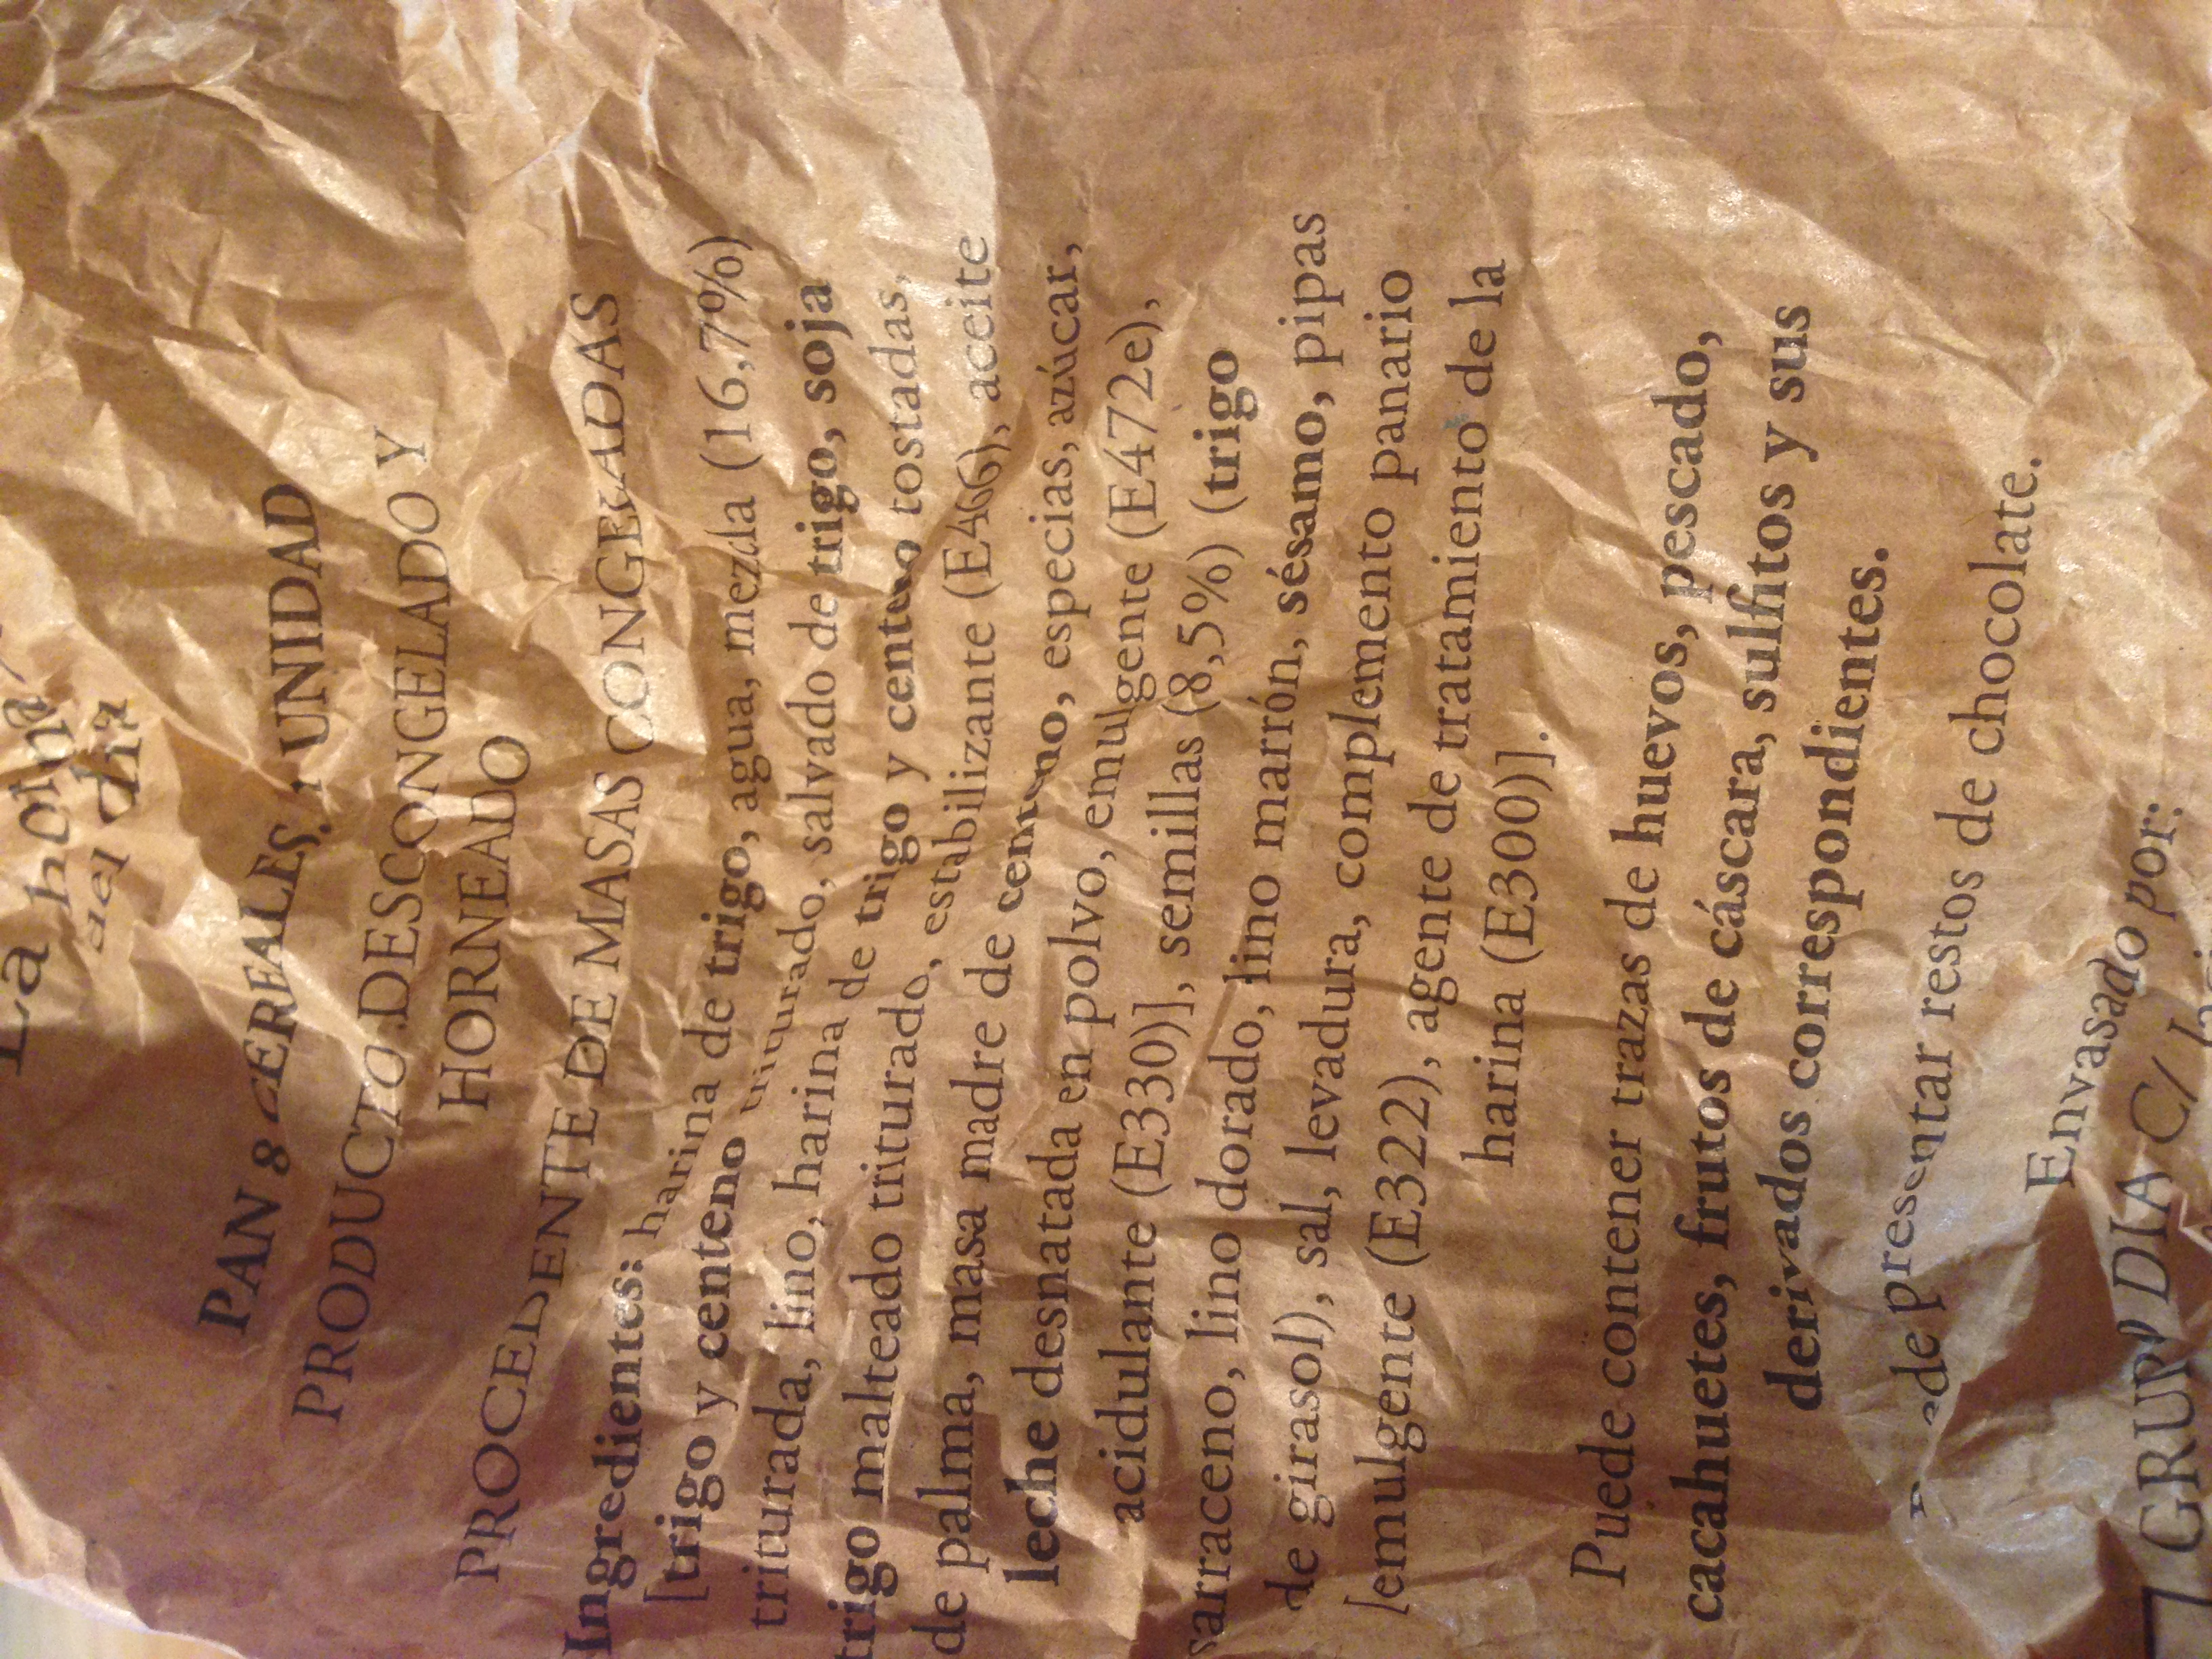 La
del día
PAN 8 CEREALES, 1 UNIDAD
PRODUCTO DESCONGELADO Y
HORNEADO
PROCEDENTE DE MASAS CONGELADAS
Ingredientes: harina de trigo, agua, mezcla (16,7%)
[trigo y centeno triturado, salvado de trigo, soja
triturada, lino, harina de trigo y centeno tostadas,
trigo malteado triturado, estabilizante (E466), aceite
de palma, masa madre de centeno, especias, azúcar,
leche desnatada en polvo, emulgente (E472e),
acidulante (E330)], semillas (8,5%) (trigo
sarraceno, lino dorado, lino marrón, sésamo, pipas
de girasol), sal, levadura, complemento panario
[emulgente (E322), agente de tratamiento de la
harina (E300)].
Puede contener trazas de huevos, pescado,
cacahuetes, frutos de cáscara, sulfitos y sus
derivados correspondientes.
Puede presentar restos de chocolate.
Envasado por:
GRUPO DIA C/